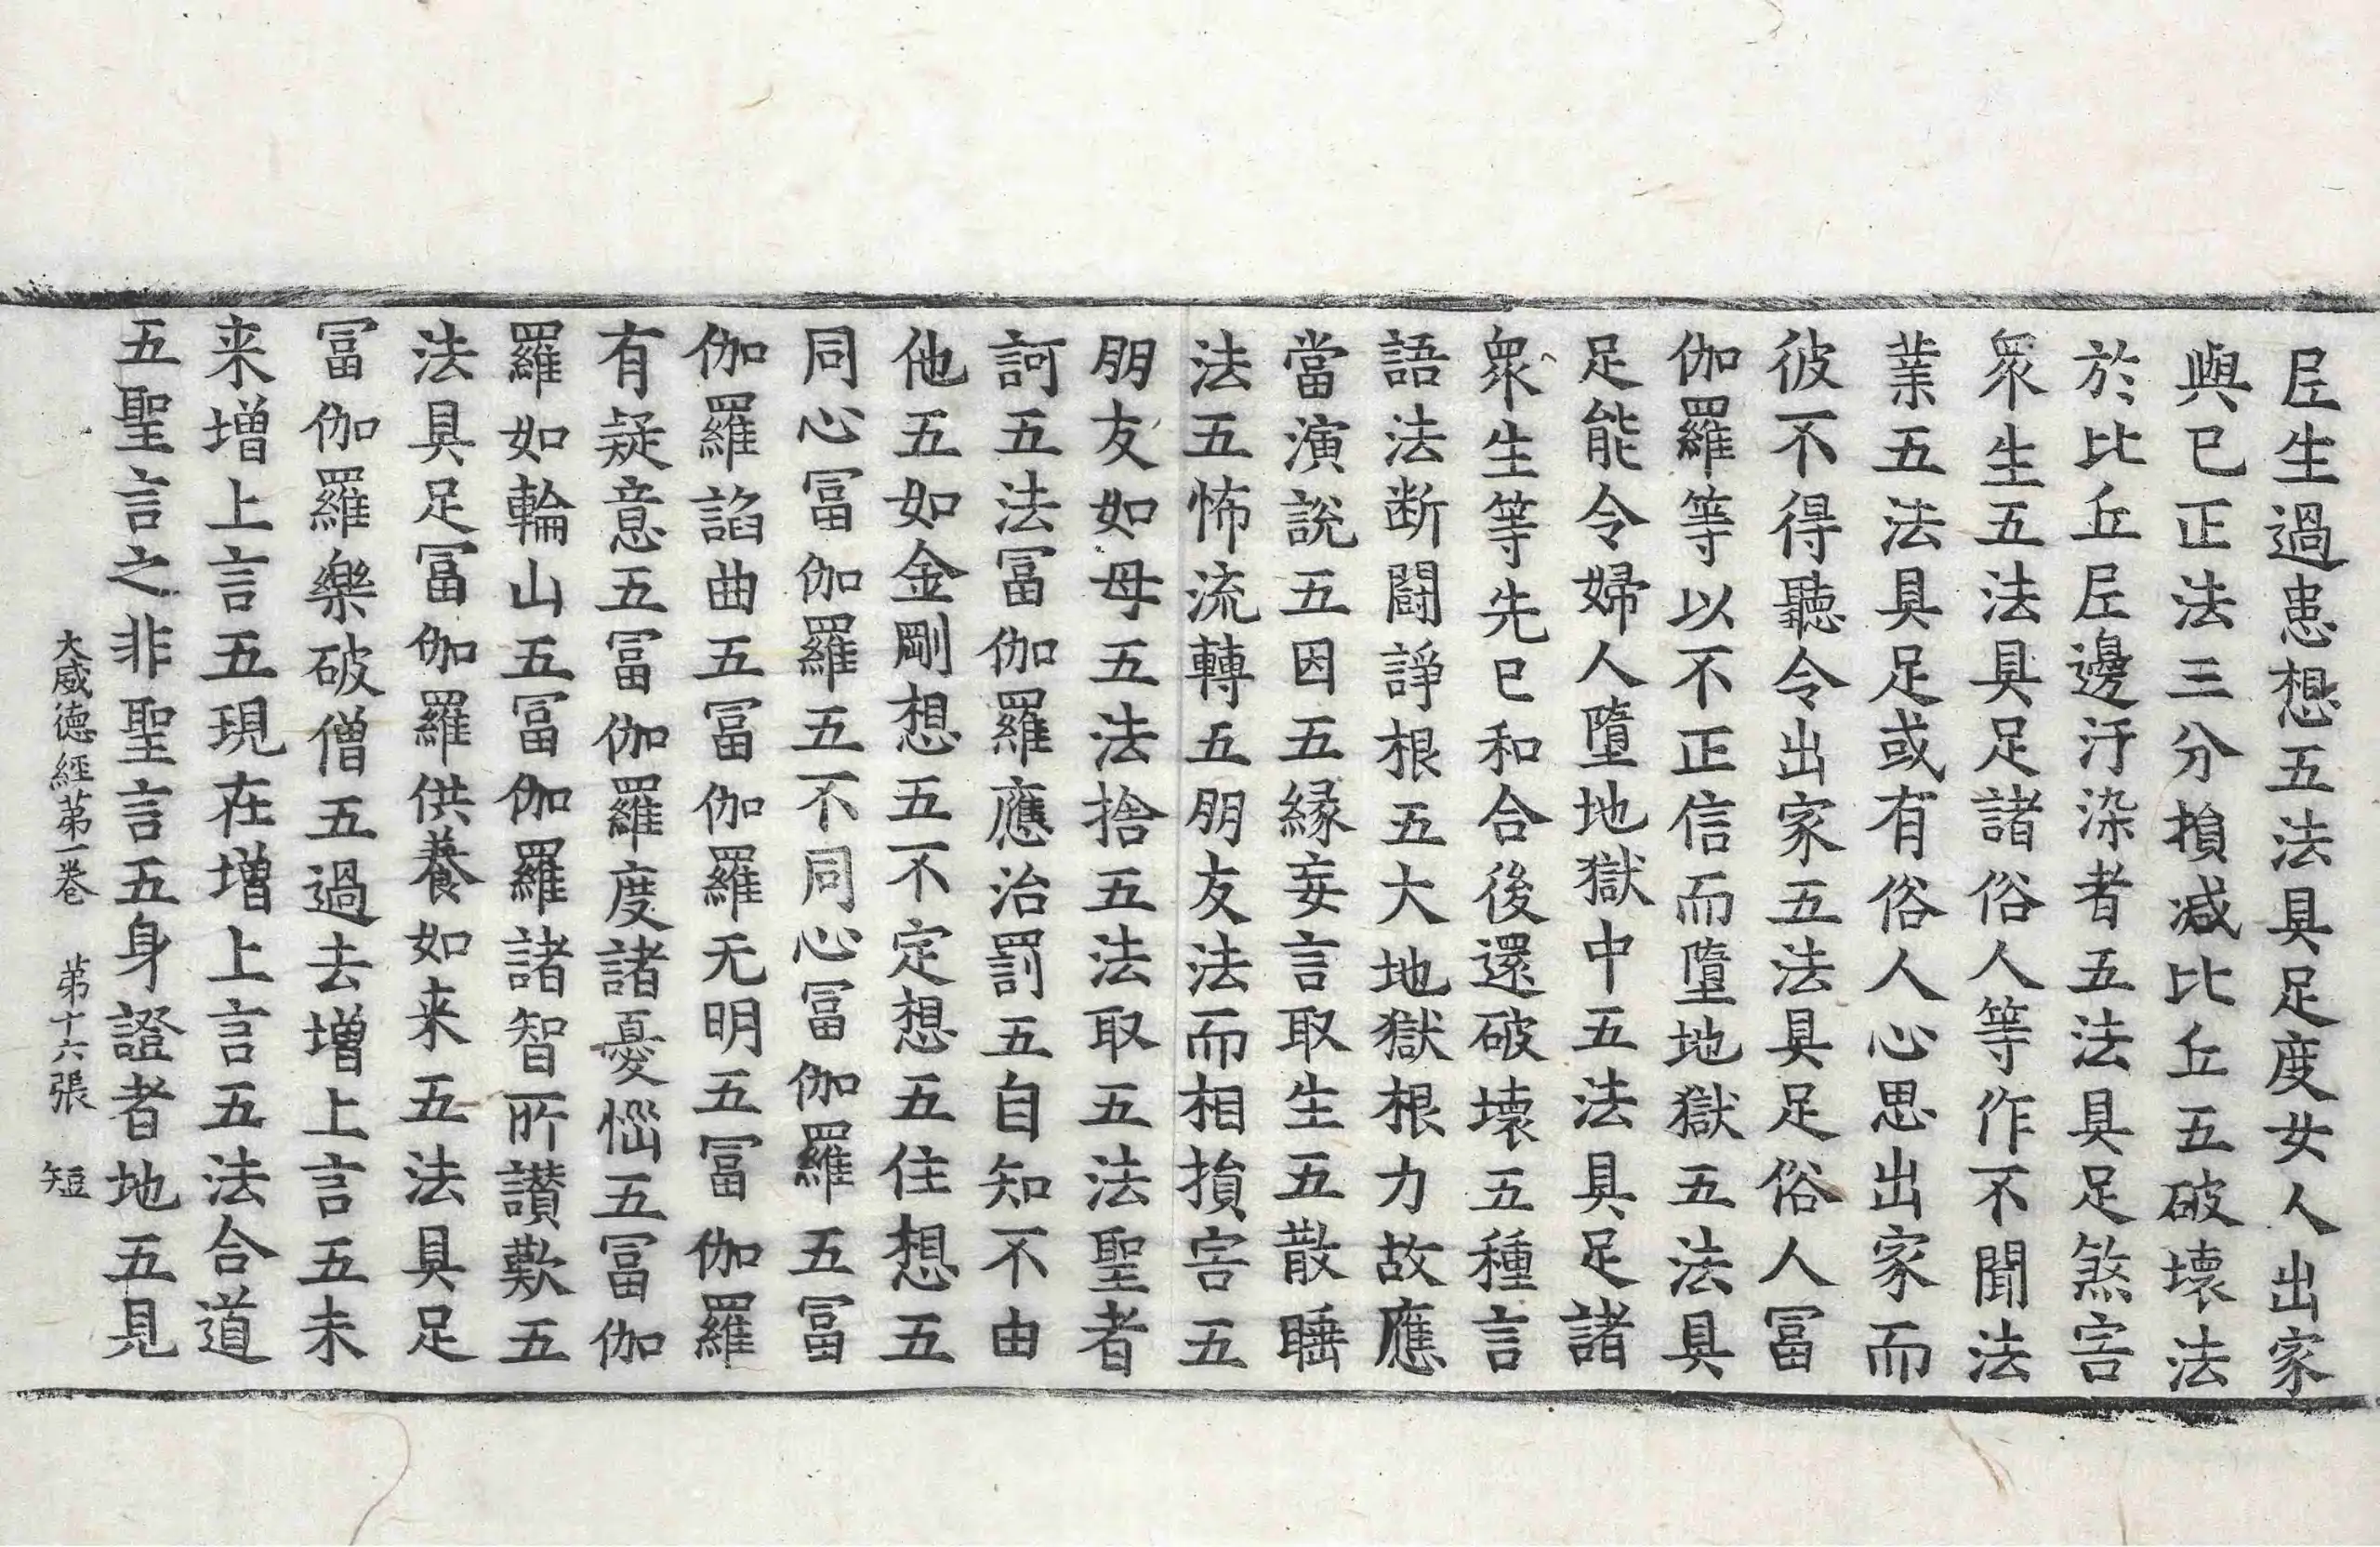 尼生過患想五法具足度女人出家
與已正法三分損减比丘五破壞法
於比丘尼邊汙染者五法具足煞害
衆生五法具足諸俗人等作不聞法
業五法具足或有俗人心思出家而
彼不得聽令出家五法具足俗人冨
伽羅等以不正信而墮地獄五法具
足能令婦人墮地獄中五法具足諸
衆生等先已和合後還破壞五種言
語法断鬪諍根五大地獄根力故應
當演說五因五緣妄言取生五散睡
法五怖流轉五朋友法而相損害五
朋友如母五法捨五法取五法聖者
訶五法冨伽羅應治罰五自知不由
他五如金剛想五不定想五住想五
同心冨伽羅五不同心冨伽羅五冨
伽羅諂曲五冨伽羅无明五冨伽羅
有疑意五冨伽羅度諸憂惱五冨伽
羅如輪山五冨伽羅諸智所讃歎五
法具足冨伽羅供養如来五法具足
冨伽羅樂破僧五過去增上言五未
来增上言五現在增上言五法合道
五聖言之非聖言五身證者地五見
大威德經第一卷　第十六張　短